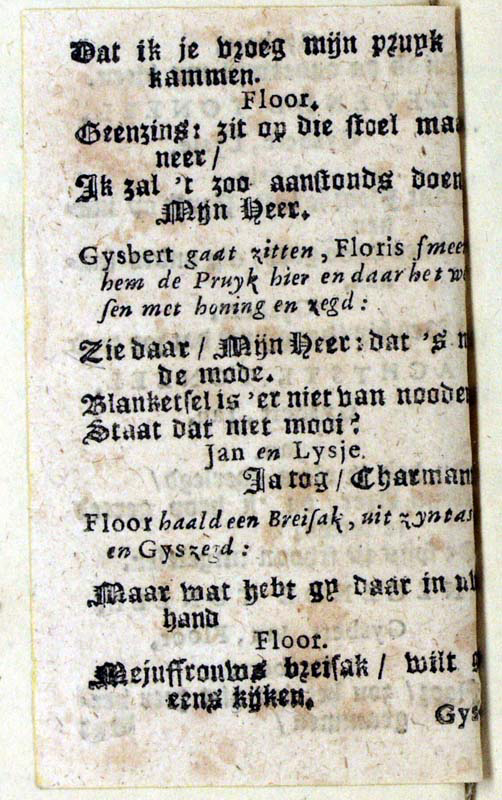 Dat ik je vroeg mijn pruyk
kammen.
Floor.
Geenzins: zit op die stoel
neer /
Ik zal 't zoo aanstonds doen
Mijn Heer.
Gysbert gaat zitten, Floris
hem de Pruyk hier en daar het
sen met honing en zegd:
Zie daar / Mijn Heer: dat 's
de mode.
Blanketsel is 'er niet van
Staat dat niet mooi?
Jan en Lysje.
Ja tog /
Floor haald een Breisak, uit
en Gys zegd:
Maar wat hebt gy daar in
hand
Floor.
Mejuffrouws breisak / wilt
eens kijken.